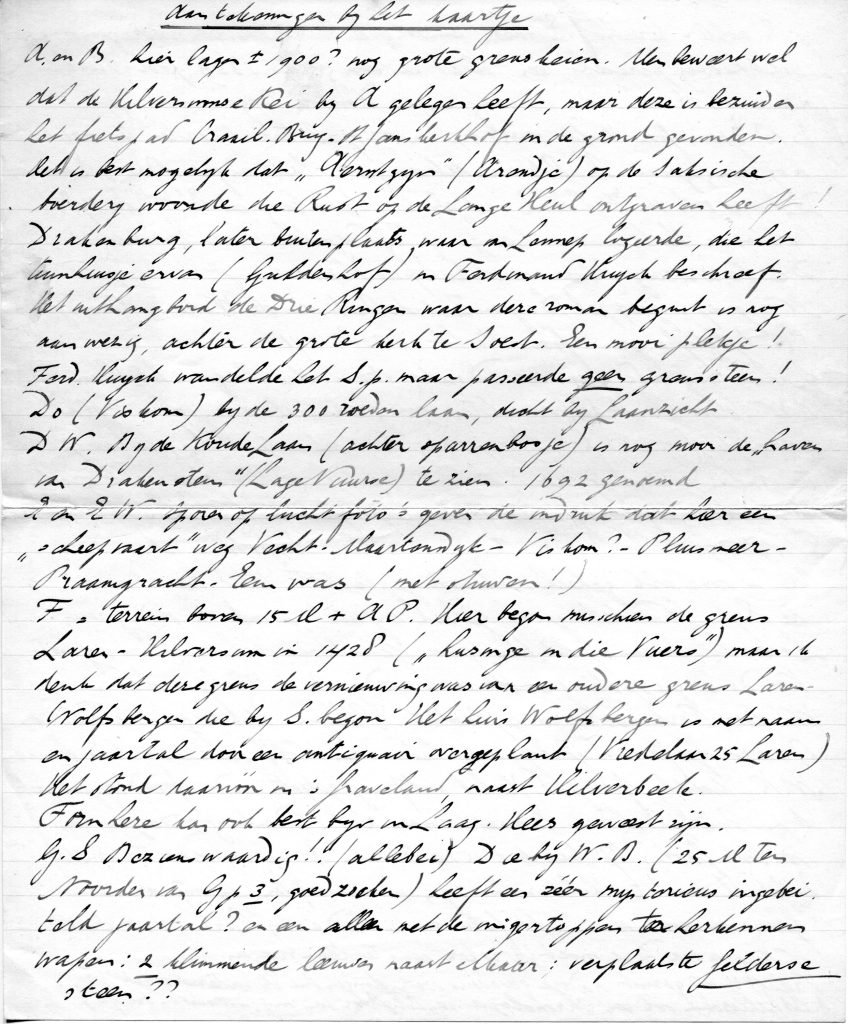 Aantekeningen by het kaartje
A. en B. hier lagen ± 1900? nog grote grenskeien. Men beweert wel
dat de Hilversumse Kei by A gelegen heeft, maar deze is bezuiden
het fietspad Craail. Brug - St Janskerkhof in de grond gevonden.
Het is best mogelyk dat „Aerntzyn" (Arendje) op de Saksische
boerdery woonde die Rust op de Lange Heul ontgraven heeft!
Drakenburg, later buitenplaats, waar v Lennep logeerde, die het
tuinhuisje ervan (Guldenhof) in Ferdinand Huyck beschreef.
Het uithangbord de Drie Ringen waar deze roman begint is nog
aanwezig, achter de grote kerk te Soest. Een mooi plekje!
Ferd. Huyck wandelde het S.p. maar passeerde geen grenssteen!
Do (Viskom) by de 300 roeden laan, dicht by Laanzicht
D W. By de Koude Laan (achter sparrenbosje) is nog mooi de „haven
van Drakensteyn" (Lage Vuurse) te zien. 1692 genoemd
E en E W. sporen op luchtfoto's geven de indruk dat hier een
„scheepvaart" weg Vecht - Maartensdyk - Viskom? - Pluismeer -
Praamgracht - Eem was (met stuwen!)
F = terrein boven 15 M + A P. Hier begon misschien de grens
Laren - Hilversum in 1428 („ in die Vuers") maar ik
denk dat deze grens de vernieuwing was van een oudere grens Laren-
Wolfsbergen die by S. begon Het huis Wolfsbergen is met naam
en jaartal door een antiquair overgeplant (Vredelaan 25 Laren)
Het stond daarvóór in 's Graveland, naast Hilverbeek.
Fornhere kan ook best byv in Laag. Hees geweest zijn.
G. S Bezienswaardig!! (allebei) Die by W. B. (25 M ten
Noorden van Gp 3, goed zoeken) heeft een zéér mysterieus ingebei.
teld jaartal? en een alleen met de vingertoppen te herkennen
wapen: 2 klimmende leeuwen naast elkaar; verplaatste Gelderse
steen??